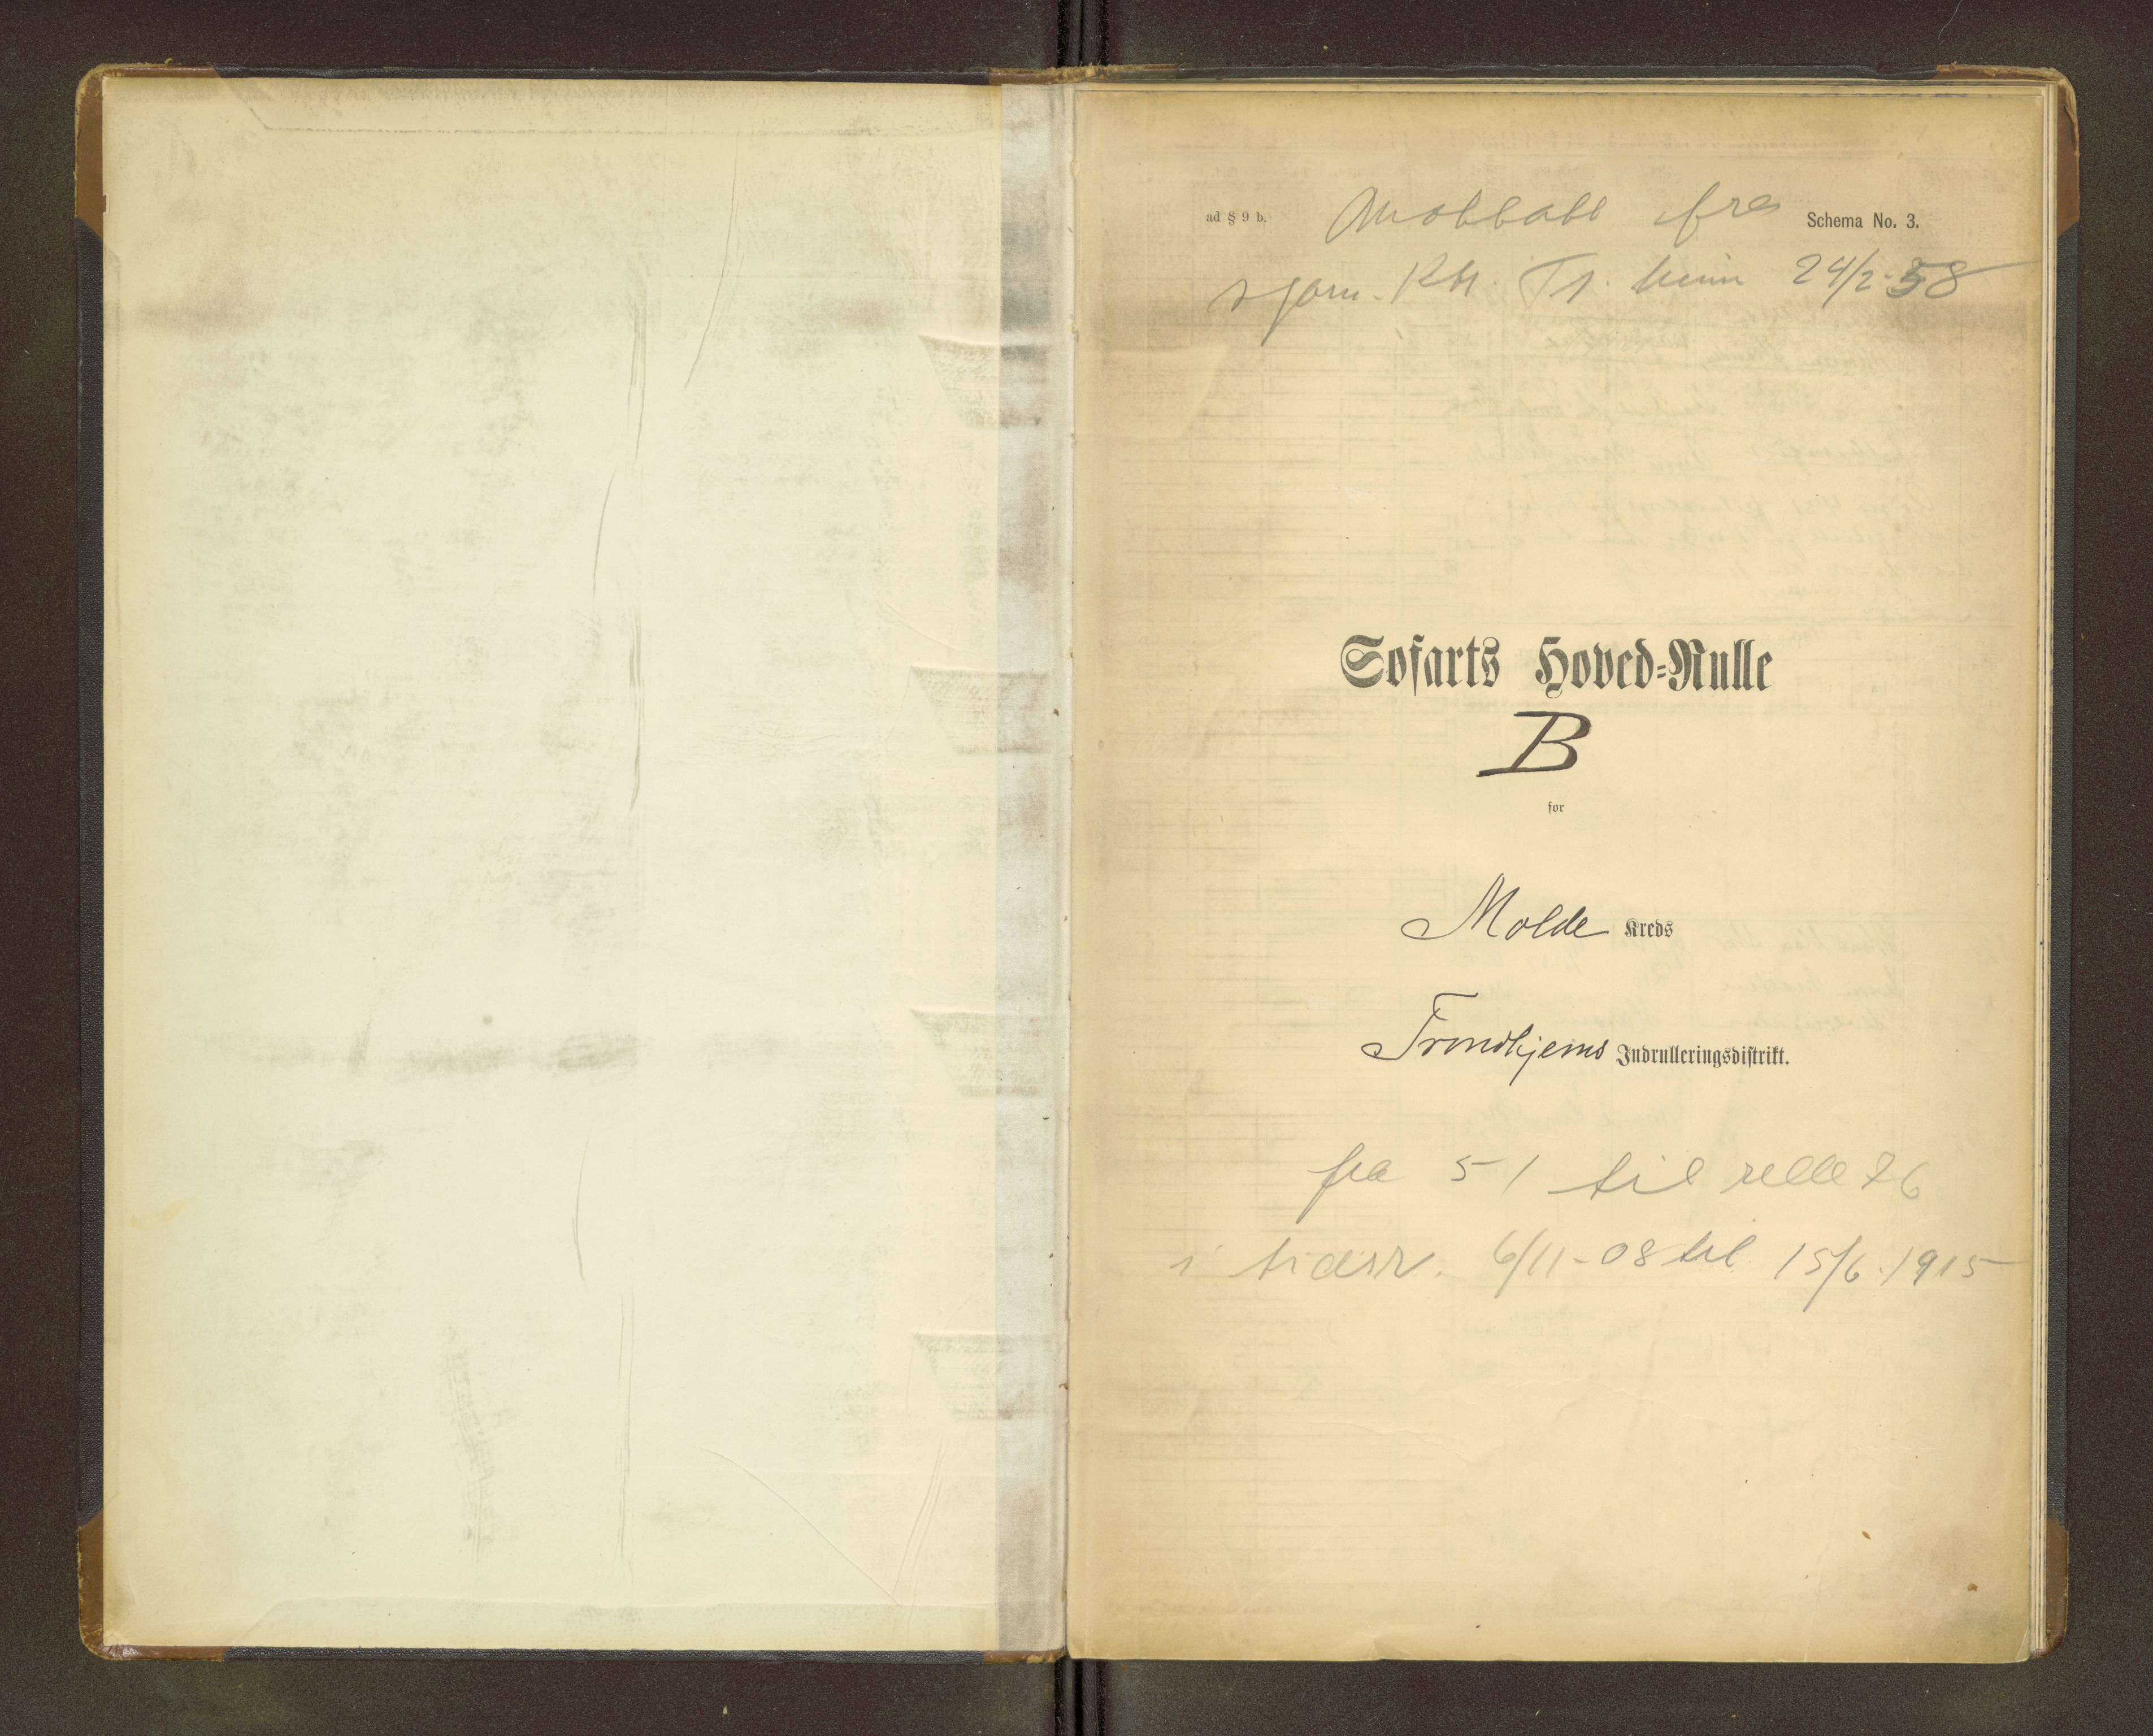 ad § 9 b.
Mottatt fra
Schema No. 3.
24/2-58
Søfarts Hoved-Rulle
B
for
Molde Kreds
Trondhjems Indrulleringsdistrikt.
fra 51 til rulle 76
i tidsr. 6/11-08 til 15/6-1915